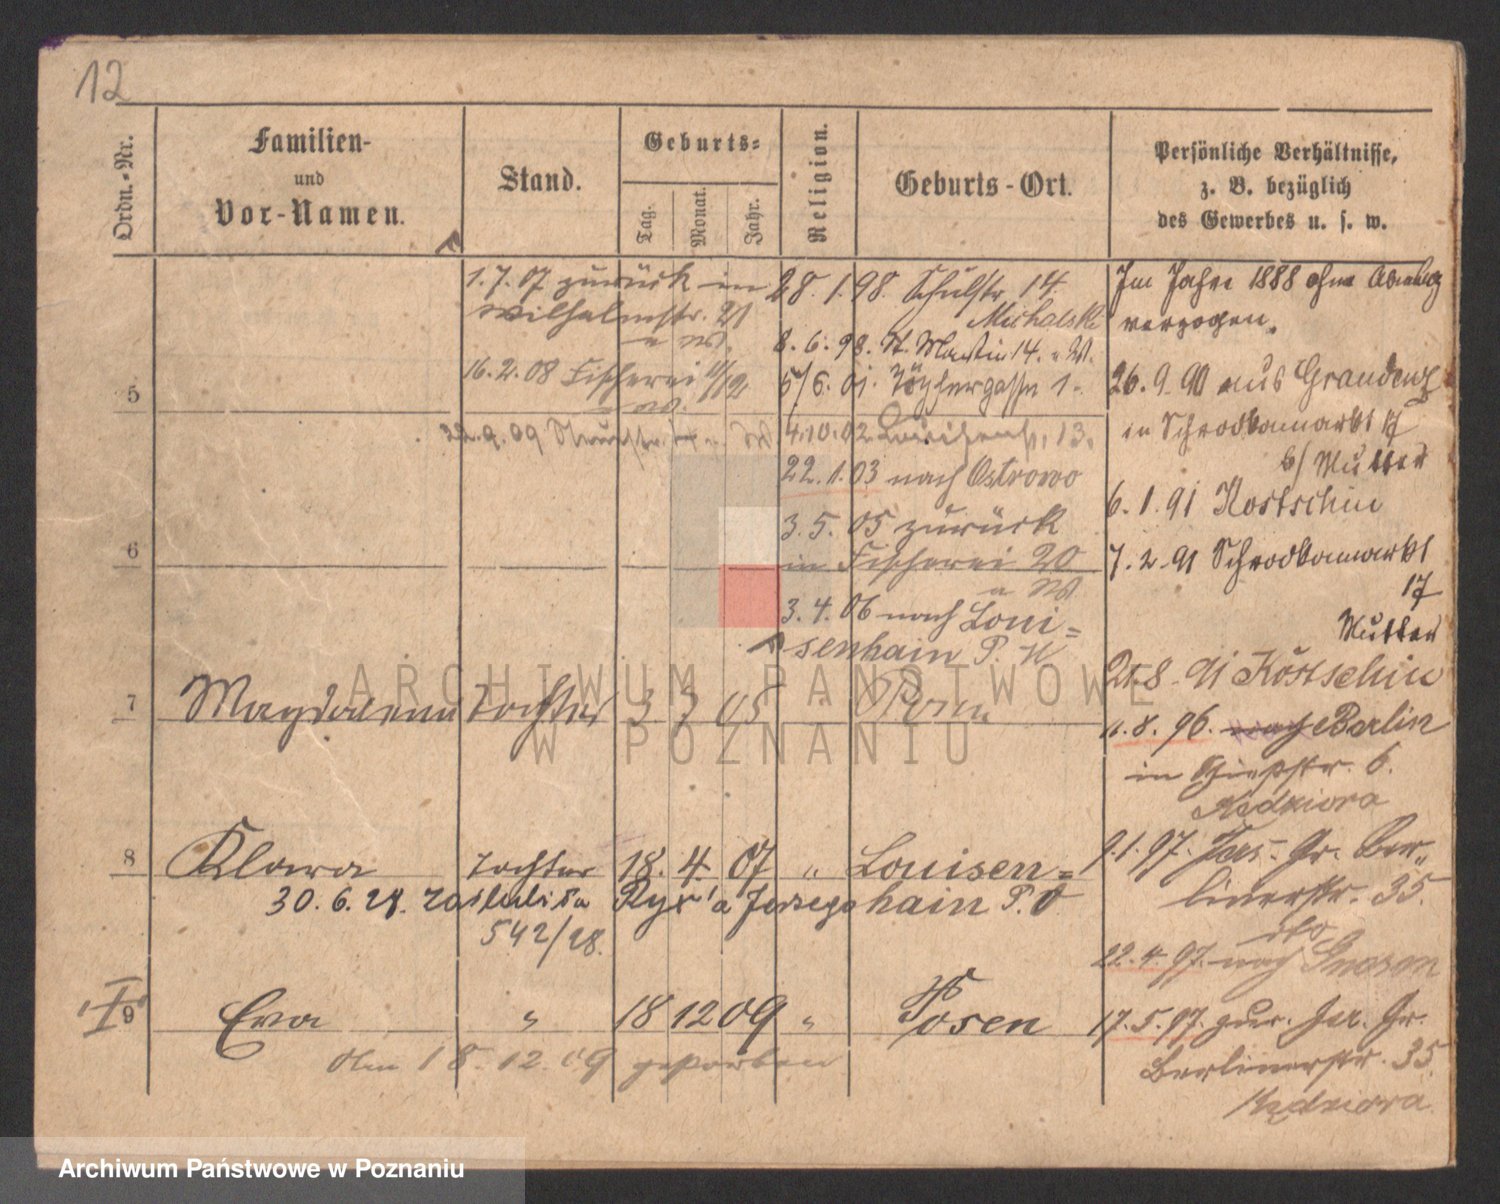 12
Ordn.-Nr.
Familien-
und
Vor-Namen.
Stand.
Geburts-
Tag.
Monat.
Jahr.
Religion.
Geburts-Ort.
Persönliche Verhältnisse,
z. B. bezüglich
des Gewerbes u. s. w.
1.7.07 zurück in
Wilhelmstr. 21
16.2.08 Fischerei 11/12
22.9.09
5
6
28.1.98. Schulstr 14.
Michalski
8.6.98. St. Martin 14. W.
5/6.01. Töpfergasse 1.
4.10.02 Louisenstr. 13.
22.1.03 nach Ostrowo
3.5.05 zurück
in Fischerei 20
3.4.06 nach Loui=
senhain P.
7 Magdalena Tochter 3 7 05 " Posen
8 Klara Tochter 18. 4. 07 " Louisen=
hain P. O
30.6.28. zaślubiła
542/28.
9 Eva " 18 12 09 " Posen
Am 18.12.09 gestorben
Im Jahre 1888 ohne
verzogen.
26.9.90 aus Graudenz
in Schrodkamarkt 17
b/ Mutter
6.1.91 Kostschin
7.2.91 Schrodkamarkt
17
Mutter
8.91 Kostschin
11.8.96. nach Berlin
in 6.
Kędziora
9.1.97. Gr. Ber-
linerstr. 35.
22.4.97. nach Gnesen
17.5.97. zur. Gr.
Berlinerstr. 35.
Kędziora
ARCHIWUM PAŃSTWOWE
W POZNANIU
Archiwum Państwowe w Poznaniu